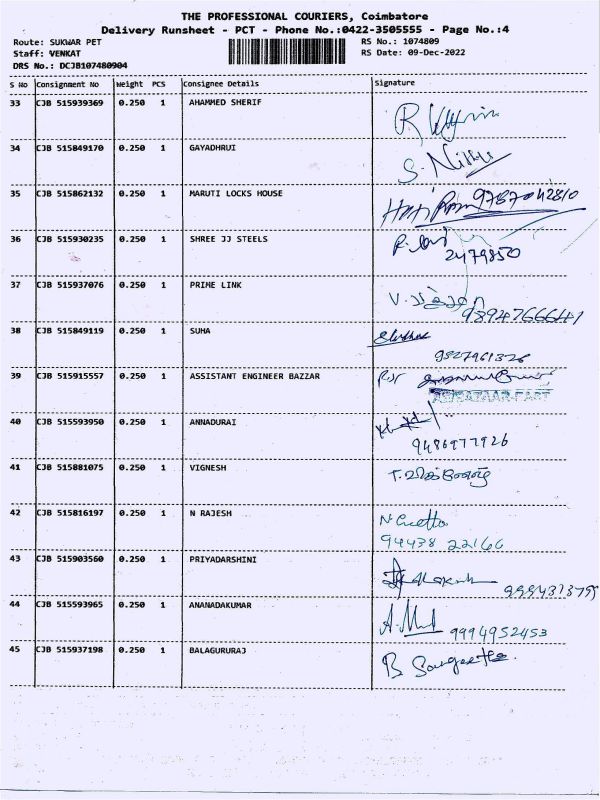 THE PROFESSIONAL COURIERS, Coimbatore
Delivery Runsheet - PCT - Phone No.:0422-3505555 - Page No.:4
Route: SUKWAR PET RS No.: 1074809
Staff: VENKAT RS Date: 09-Dec-2022
DRS No.: DCJB107480904
S No Consignment No Weight PCS Consignee Details Signature
33 CJB 515939369 0.250 1 AHAMMED SHERIF
34 CJB 515849170 0.250 1 GAYADHRUI
35 CJB 515862132 0.250 1 MARUTI LOCKS HOUSE 9787042810
36 CJB 515930235 0.250 1 SHREE JJ STEELS
2479850
37 CJB 515937076 0.250 1 PRIME LINK
38 CJB 515849119 0.250 1 SUHA
39 CJB 515915557 0.250 1 ASSISTANT ENGINEER BAZZAR
40 CJB 515593950 0.250 1 ANNADURAI
9486977926
41 CJB 515881075 0.250 1 VIGNESH
42 CJB 515816197 0.250 1 N RAJESH
94438 22166
43 CJB 515903560 0.250 1 PRIYADARSHINI
44 CJB 515593965 0.250 1 ANANADAKUMAR
9994952453
45 CJB 515937198 0.250 1 BALAGURURAJ
B Sangeetha